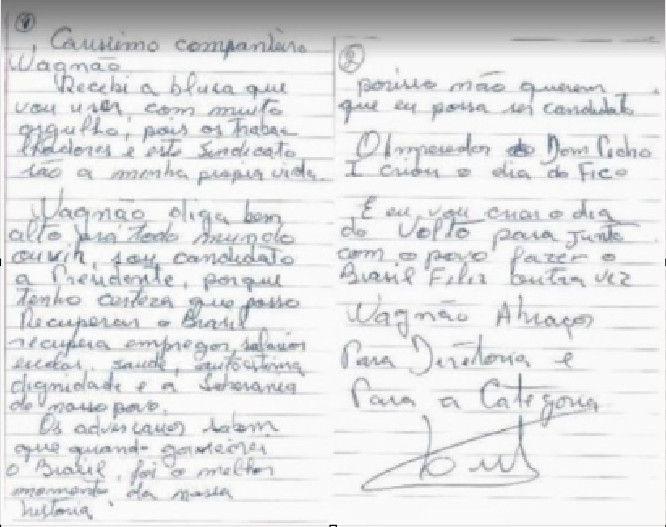 1
Caríssimo companheiro
Wagnão
Recebi a blusa que
vou usar, com muito
orgulho, pois os traba-
lhadores e este Sindicato
são a minha propria vida.
Wagnão diga bem
alto prá todo mundo
ouvir, sou candidato
a Presidente, porque
tenho certeza que posso
Recuperar o Brasil
recupera empregos, salarios
escolas, saude, autoestima
dignidade e a Soberania
do nosso povo.
Os adversarios sabem
que quando governei
o Brasil, foi o melhor
momento da nossa
historia
2
porisso não querem
que eu possa ser candidato
O Imperador Dom Pedro
I criou o dia do Fico
E eu vou criar o dia
do Volto para junto
com o povo fazer o
Brasil Feliz outra vez
Wagnão Abraços
Para Diretoria e
Para a Categoria